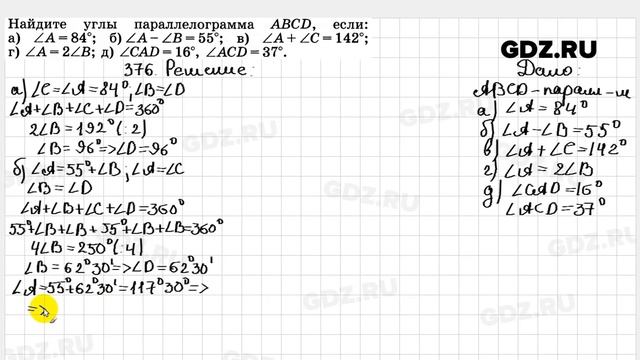 Найдите углы параллелограмма ABCD, если:
а) ∠A = 84°; б) ∠A − ∠B = 55°; в) ∠A + ∠C = 142°;
г) ∠A = 2∠B; д) ∠CAD = 16°, ∠ACD = 37°.
GDZ.RU
376. Решение:
а) ∠C = ∠A = 84°, ∠B = ∠D
∠A + ∠B + ∠C + ∠D = 360°
2∠B = 192° (:2)
∠B = 96° => ∠D = 96°
б) ∠A = 55° + ∠B; ∠A = ∠C
∠B = ∠D
∠A + ∠B + ∠C + ∠D = 360°
55° + ∠B + ∠B + 55° + ∠B + ∠B = 360°
4∠B = 250° (:4)
∠B = 62°30' => ∠D = 62°30'
∠A = 55° + 62°30' = 117°30° =>
=>
Дано:
ABCD – парал – м
а) ∠A = 84°
б) ∠A − ∠B = 55°
в) ∠A + ∠C = 142°
г) ∠A = 2∠B
д) ∠CAD = 16°
∠ACD = 37°
GDZ.RU
GDZ.RU
GDZ.RU
GDZ.RU